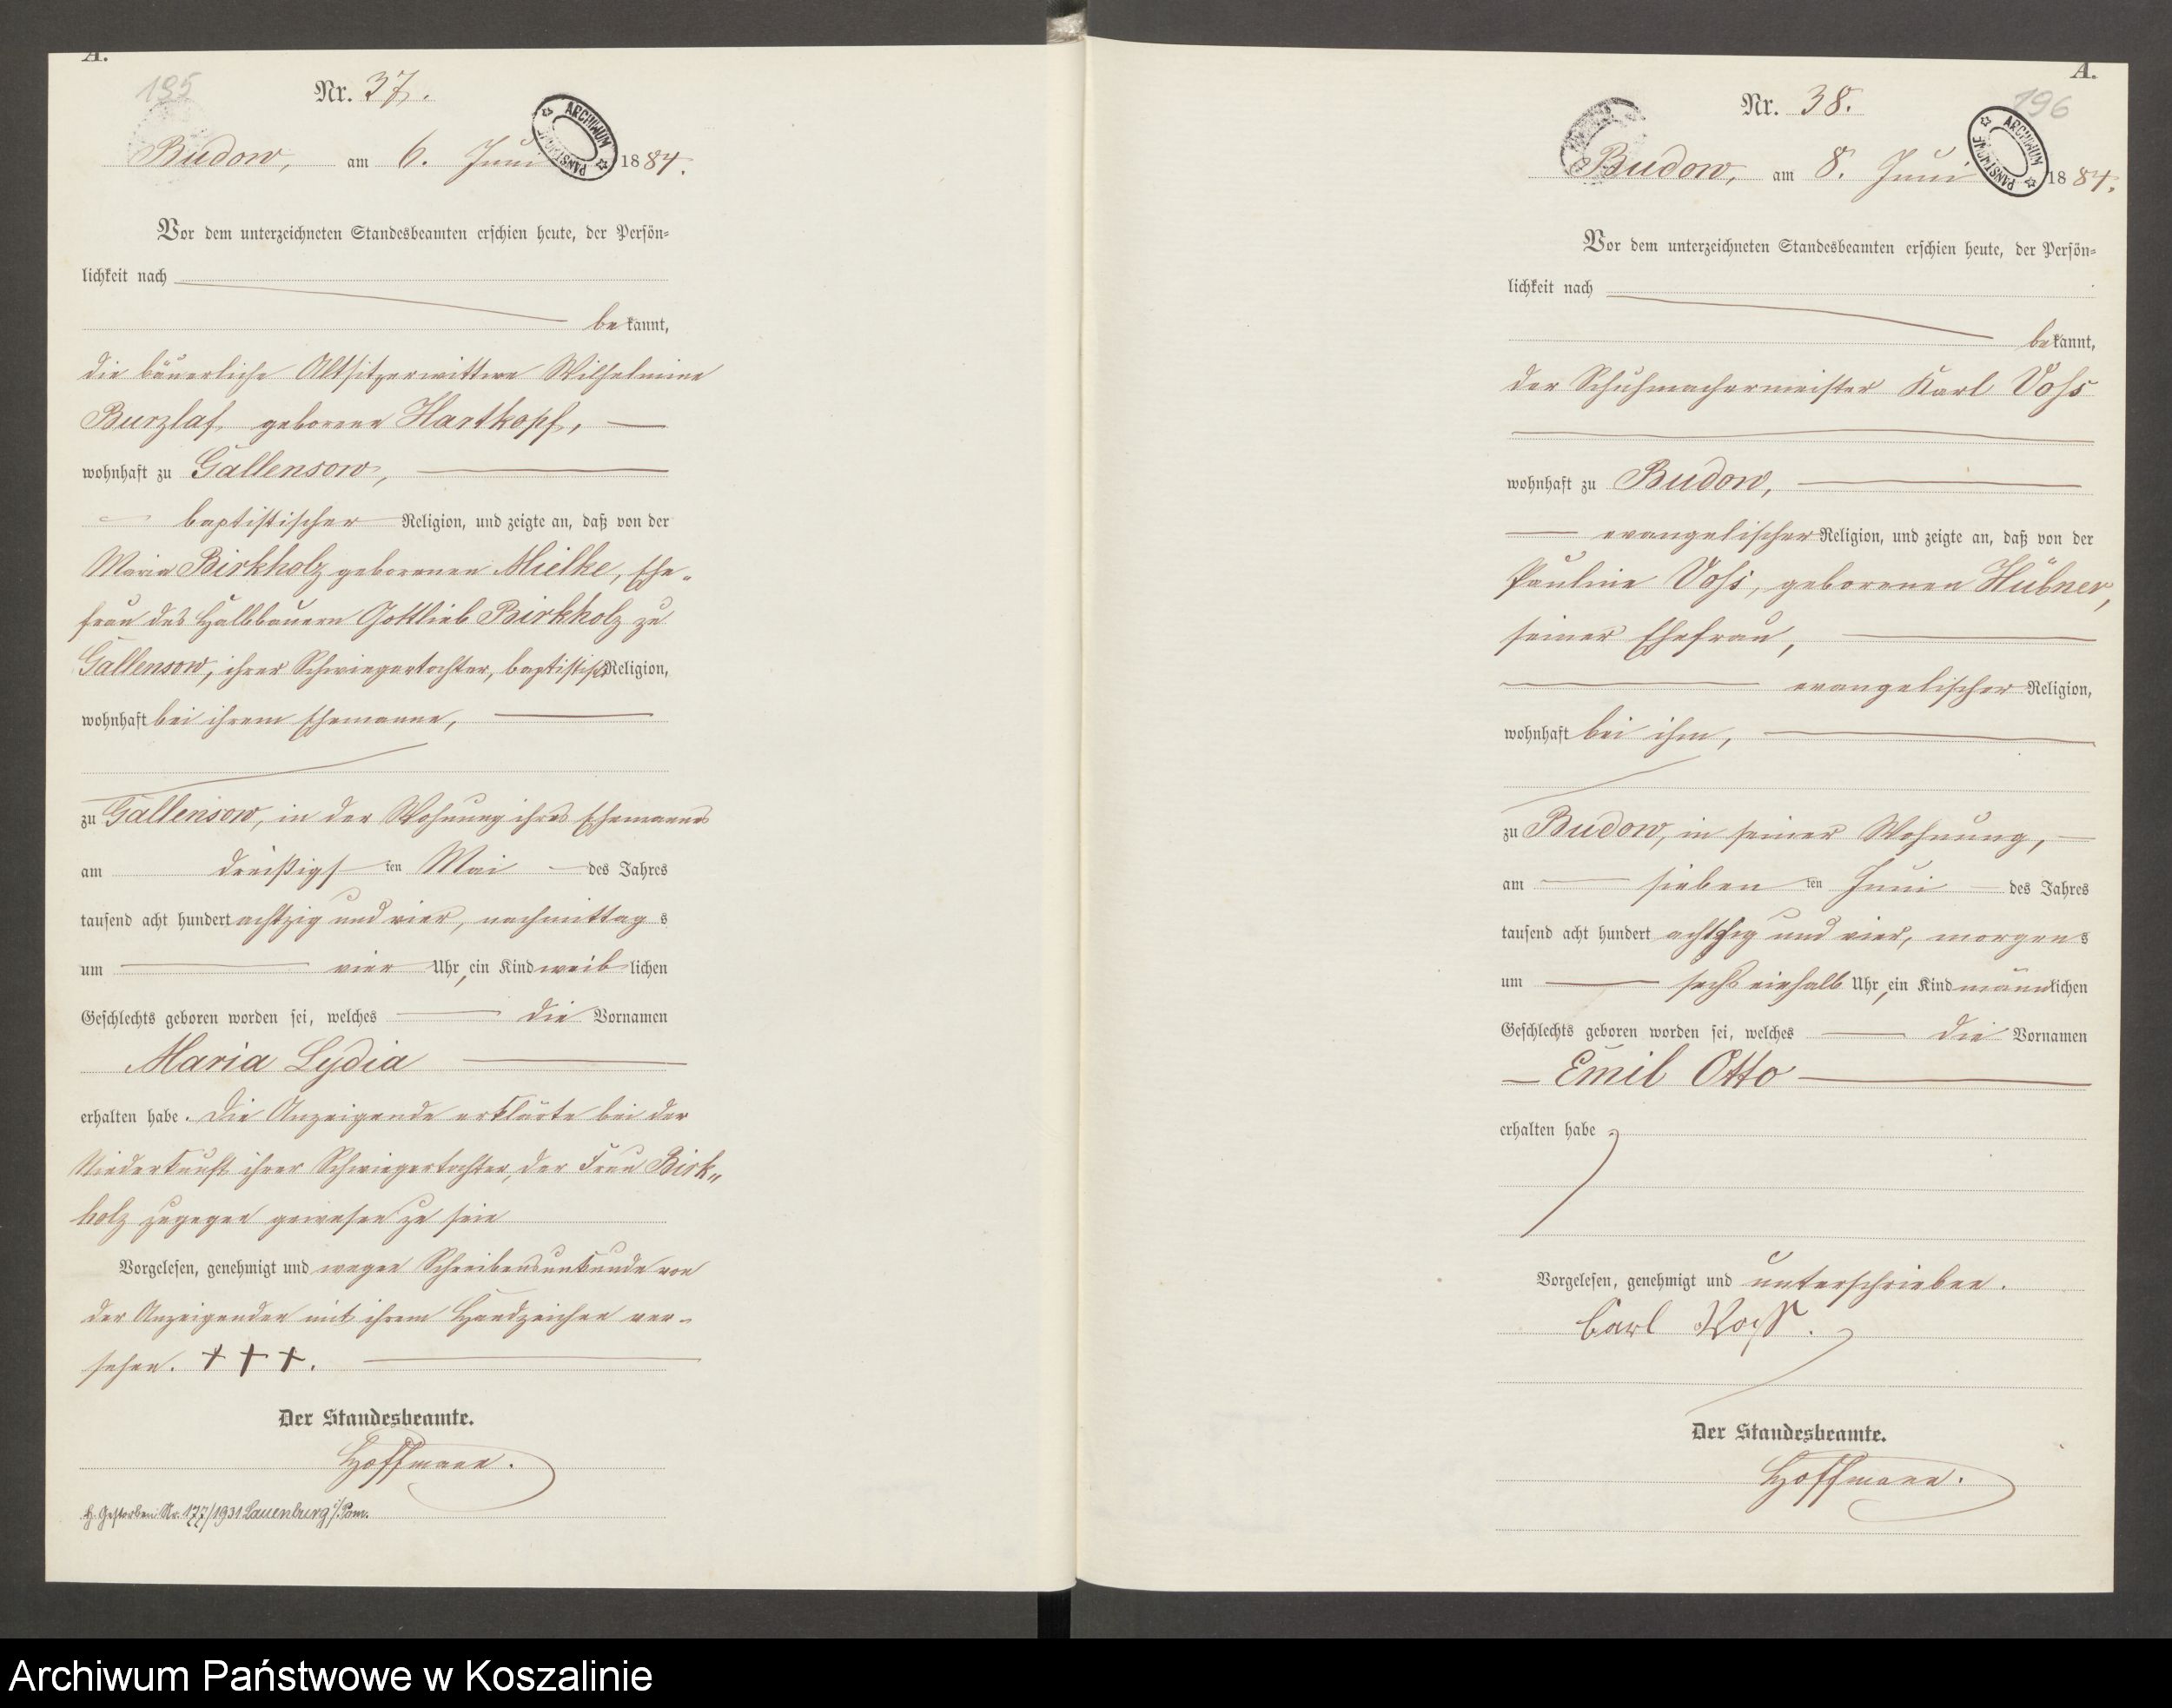 A.
195
Nr. 37.
ARCHIWUM PAŃSTWOWE
Budow, am 6. Juni 1884.
Vor dem unterzeichneten Standesbeamten erschien heute, der Persön-
lichkeit nach
bekannt,
die bäuerliche Altsitzerwittwe Wilhelmine
Burzlaf, geborene Hartkopf,
wohnhaft zu Gallensow,
baptistischer Religion, und zeigte an, daß von der
Maria Birkholz geborenen Mielke, Ehe-
frau des Halbbauern Gottlieb Birkholz zu
Gallensow, ihrer Schwiegertochter, baptistisch Religion,
wohnhaft bei ihrem Ehemanne,
zu Gallensow, in der Wohnung ihres Ehemannes
am dreißigsten Mai des Jahres
tausend acht hundert achtzig und vier, nachmittags
um vier Uhr, ein Kind weiblichen
Geschlechts geboren worden sei, welches die Vornamen
Maria Lydia
erhalten habe. Die Anzeigende erklärte bei der
Niederkunft ihrer Schwiegertochter, der Frau Birk-
holz zugegen gewesen zu sein
Vorgelesen, genehmigt und wegen Schreibensunkunde von
der Anzeigenden mit ihrem Handzeichen ver-
sehen. +++.
Der Standesbeamte.
Hoffmann.
H. Gestorben Nr. 177/1931 Lauenburg i/Pom.
A.
196
Nr. 38.
ARCHIWUM PAŃSTWOWE
Budow, am 8. Juni 1884.
Vor dem unterzeichneten Standesbeamten erschien heute, der Persön-
lichkeit nach
bekannt,
der Schuhmachermeister Karl Vohs
wohnhaft zu Budow,
evangelischer Religion, und zeigte an, daß von der
Pauline Vohs, geborenen Hübner,
seiner Ehefrau,
evangelischer Religion,
wohnhaft bei ihm,
zu Budow, in seiner Wohnung,
am siebenten Juni des Jahres
tausend acht hundert achtzig und vier, morgens
um sechs einhalb Uhr, ein Kind männlichen
Geschlechts geboren worden sei, welches die Vornamen
Emil Otto
erhalten habe.
Vorgelesen, genehmigt und unterschrieben.
Carl Voß.
Der Standesbeamte.
Hoffmann.
Archiwum Państwowe w Koszalinie